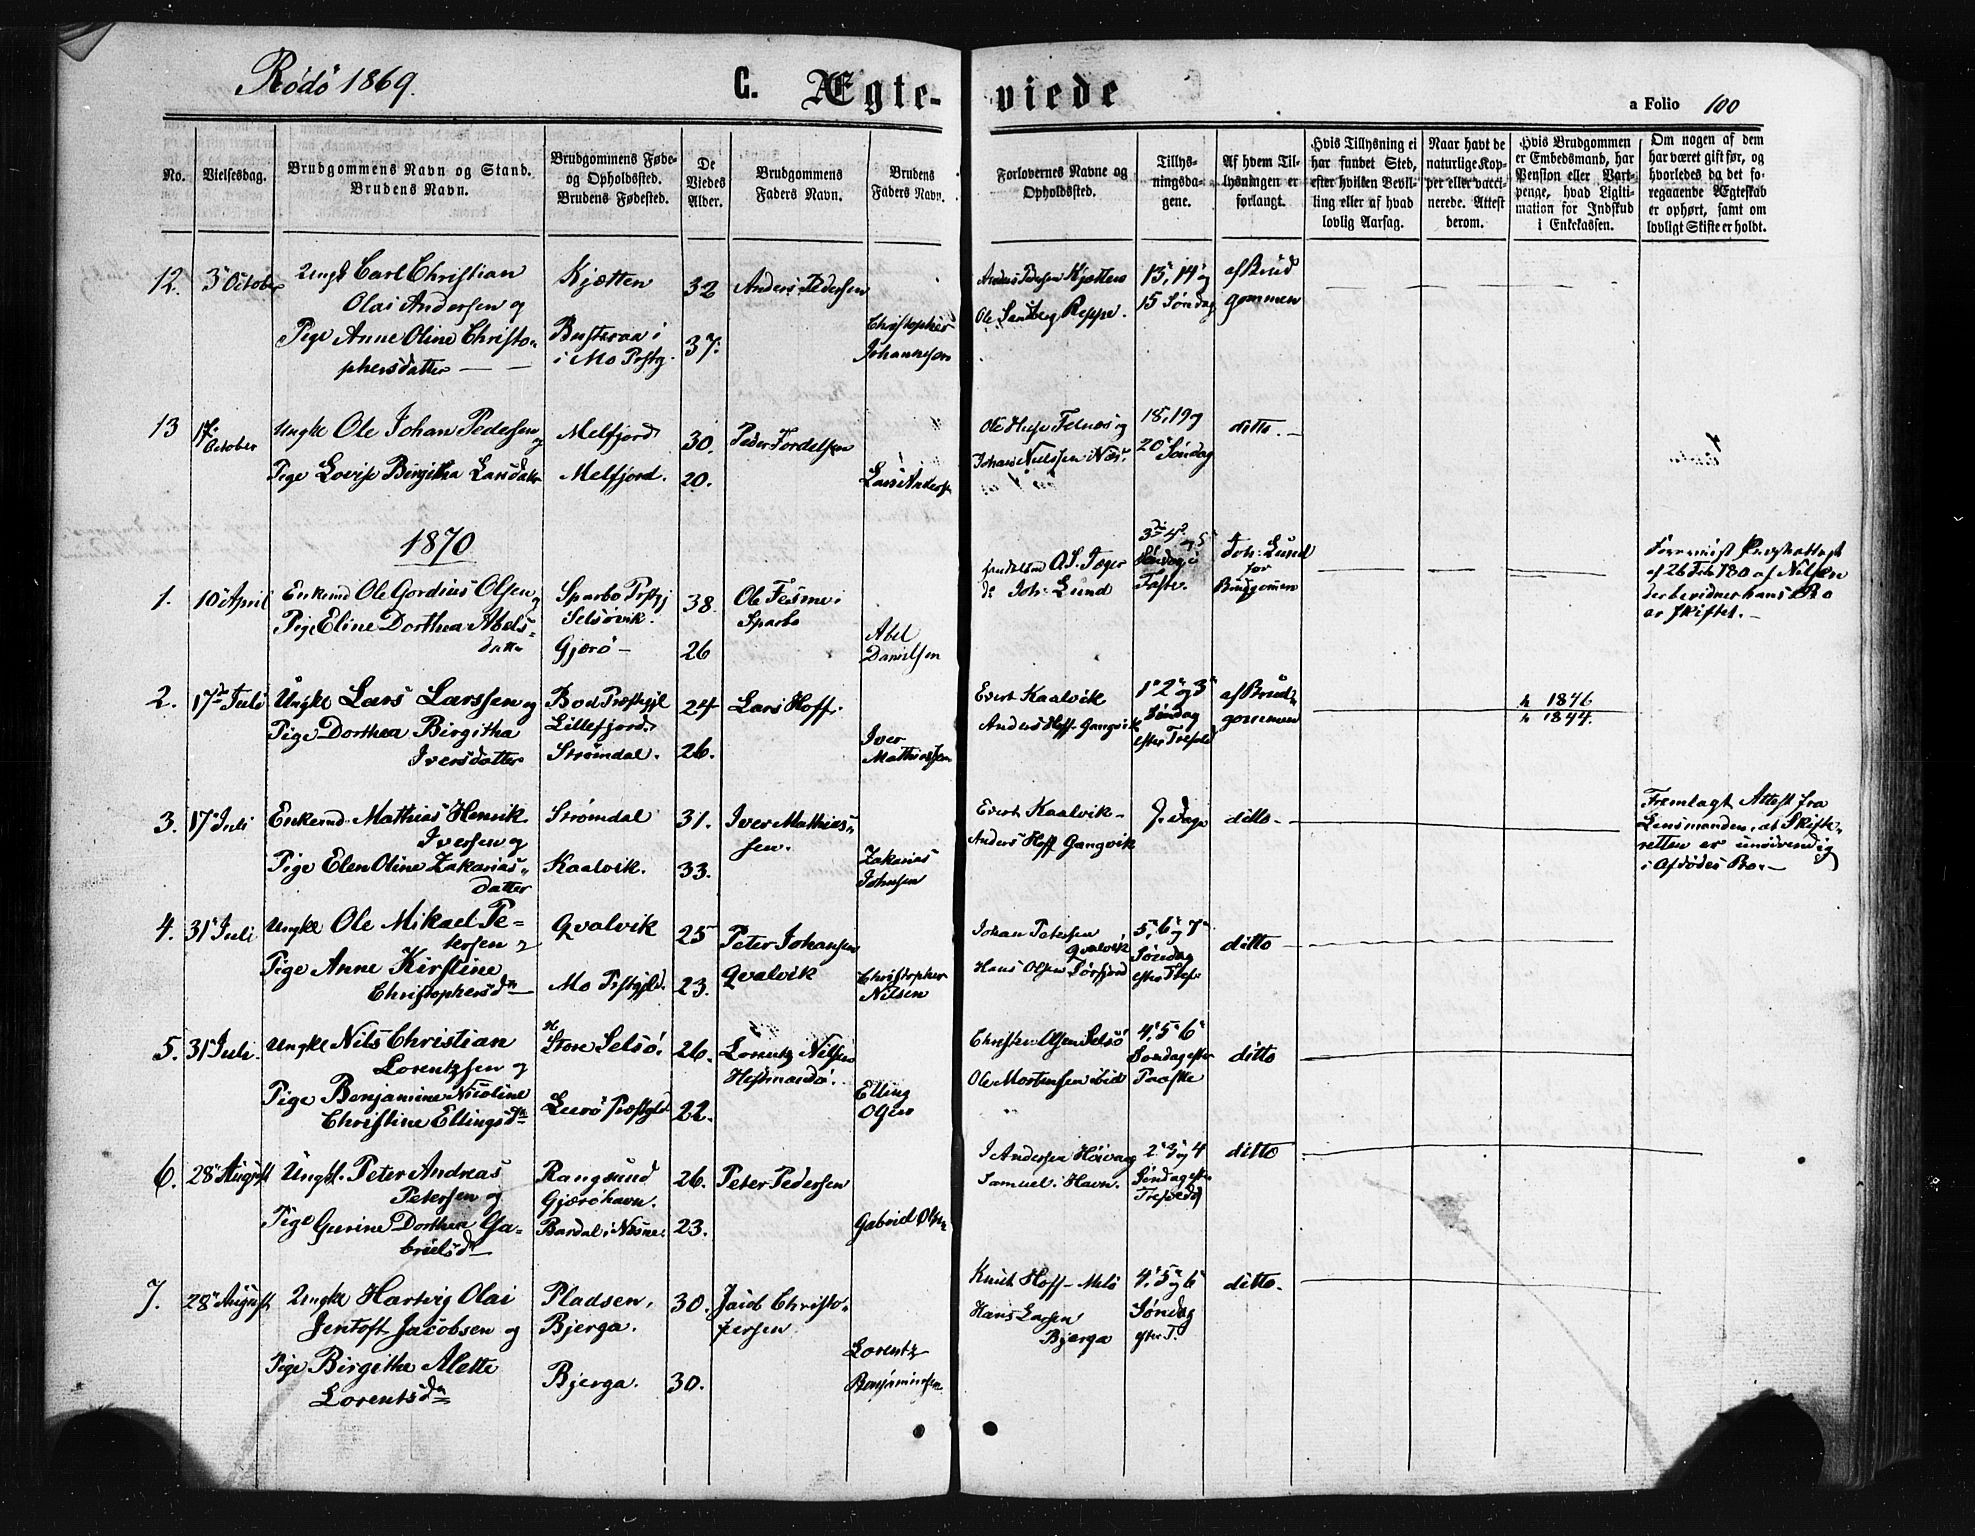 Rödö 1869.
C. Ægte-
viede
a Folio 100
No.
Vielsesdag.
Brudgommens Navn og Stand.
Brudens Navn.
Brudgommens Føde-
og Opholdssted.
Brudens Fødested.
De
Viedes
Alder.
Brudgommens
Faders Navn.
Brudens
Faders Navn.
Forlovernes Navne og
Opholdssted.
Tillys-
ningsda-
gene.
Af hvem Til-
lysningen er
forlangt.
Hvis Tillysning ei
har fundet Sted,
efter hvilken Bevil-
ling eller af hvad
lovlig Aarsag.
Naar havt de
naturlige Kop-
per eller vacci-
nerede. Attest
derom.
Hvis Brudgommen
er Embedsmand, har
Pension eller Vart-
penge, hvad Ligiti-
mation for Indskud
i Enkekassen.
Om nogen af dem
har været gift før, og
hvorledes da det fo-
regaaende Ægteskab
er ophørt, samt om
lovligt Skifte er holdt.
12. 3 October
Ungk Carl Christian
Olai Andersen og
Pige Anne Oline Christo-
phersdatter
Kjætten
i Mo Prstg.
32
37.
Anders Pedersen
Christopher
Johannesen
Anders Pedersen Kjætten
Ole Sandberg Reppe.
13, 14 og
15 Søndag
af Brud
gommen
13 17. October
Ungke Ole Johan Pedersen og
Pige Lovise Birgitha Larsdatter
Melfjord
Melfjord.
30.
20.
Peder Tordelsen
Lars Anders
Johan Nielssen Næs.
18, 19 og
20 Søndag
ditto.
1870
1. 10 April
Enkemd Ole Gordius Olsen og
Pige Eline Dorthea Abels-
datter
Sparbo Prstgj
Selsövik.
Gjærö
38.
26
Ole Fesme i
Sparbo
Abel
Danielsen
do Joh: Lund
3die 4de og 5
Søndag i
Faste.
Joh: Lund
for
Brudgomen
er skiftet.
2. 17de Juli
Ungke Lars Larssen og
Pige Dorthea Birgitha
Iversdatter
Bod Præstgjl
Lillefjord.
Strömdal.
24
26.
Lars Hoff.
Iver
Mathiassen
Evert Kaalvik
Anders Hoff Gangvik
1. 2 og 3
Søndag
efter Trefold
af Brud-
gommen
h 1846
h 1844.
3. 17 Juli
Enkemd Mathias Henrik
Iversen og
Pige Elen Oline Zakarias-
datter
Strömdal
Kaalvik.
31.
33.
Iver Mathias-
sen.
Zakarias
Johnsen
Evert Kaalvik
Anders Hoff Gangvik
ditto
Fremlagt Attest fra
Lensmanden, at Skifte-
retten er unödvendig
i Afdödes Bo.
4. 31 Juli
Ungke Ole Mikael Pe-
tersen og
Pige Anne Kirstine
Christophersdr
Qvalvik
Mo Prstgjld.
25
23.
Peter Johansen
Qvalvik
Christopher
Nilsen
Johan Petersen
Qvalvik
Hans Olsen Sörfjord
5, 6 og 7
Søndag
efter Tref
ditto
5. 31 Juli.
Ungke Nils Christian
Lorentzsen og
Pige Benjamine Nicoline
Christine Ellingsdr
Store Selsö.
Luro Præstgld
26.
22.
Lorentz Nilsen
Hestmandö.
Elling
Christen Olsen Selsö
Ole Mortensen ibid
4. 5. 6
Søndag efter
Paaske
ditto
6. 28 August
Ungk. Peter Andreas
Petersen og
Pige Gurine Dorthea Ga-
brielsdr
Rangsund
Gjæröhavn.
Bardal i Næsne.
26.
23.
Peter Pedersen
Gabriel Olsen
I Andersen Höivaag
Samuel. Havn.
2. 3 og 4
Søndag eft.
Trefold
ditto
7. 28 August
Ungke Hartvig Olai
Jentoft Jacobsen og
Pige Birgithe Alette
Lorentsdr
Pladsen,
Bjerga.
Bjerga.
30.
30.
Jacob Christo-
persen
Lorentz
Benjaminsen
Knut Hoff Melö
Hans Larsen
Bjerga
4. 5 og 6
Søndag
efter T.
ditto.